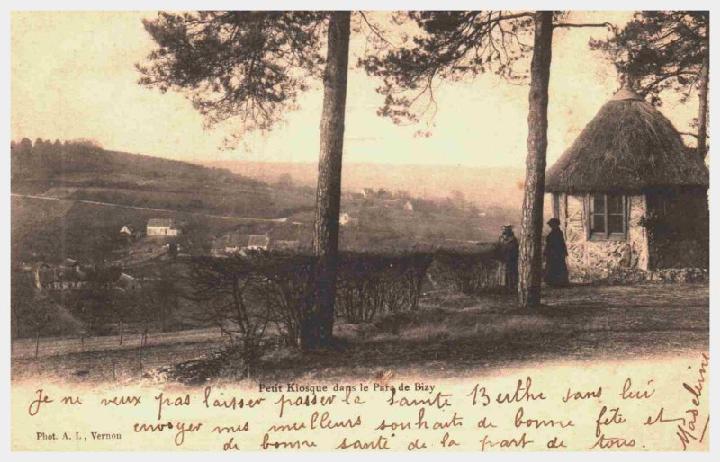 Petit Kiosque dans le Parc de Bizy
Je ne veux pas laisser passer la Sainte Berthe sans lui
envoyer mes meilleurs souhaits de bonne fête et
de bonne santé de la part de tous.
Madeleine
Phot. A. L., Vernon